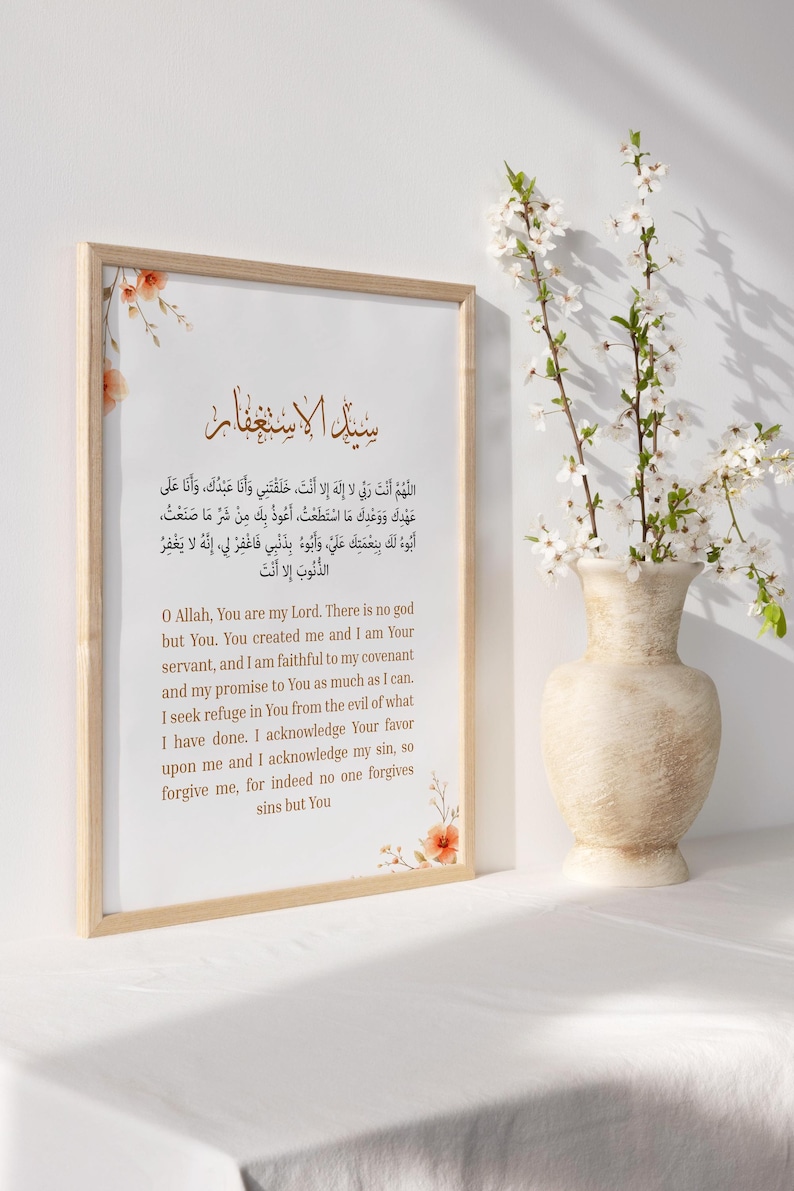 سيد الاستغفار
اللَّهُمَّ أَنْتَ رَبِّي لا إِلَهَ إِلا أَنْتَ، خَلَقْتَنِي وَأَنَا عَبْدُكَ، وَأَنَا عَلَى
عَهْدِكَ وَوَعْدِكَ مَا اسْتَطَعْتُ، أَعُوذُ بِكَ مِنْ شَرِّ مَا صَنَعْتُ،
أَبُوءُ لَكَ بِنِعْمَتِكَ عَلَيَّ، وَأَبُوءُ بِذَنْبِي فَاغْفِرْ لِي، إِنَّهُ لا يَغْفِرُ
الذُّنُوبَ إِلا أَنْتَ
O Allah, You are my Lord. There is no god
but You. You created me and I am Your
servant, and I am faithful to my covenant
and my promise to You as much as I can.
I seek refuge in You from the evil of what
I have done. I acknowledge Your favor
upon me and I acknowledge my sin, so
forgive me, for indeed no one forgives
sins but You